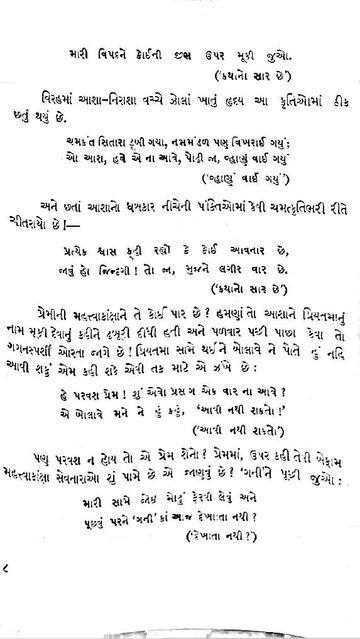 મારી વિપદને કોઈની જીભ ઉપર મૂકી જુઓ.
(‘કથાનો સાર છે’)
વિરહમાં આશા–નિરાશા વચ્ચે ઝોલાં ખાતું હૃદય આ કૃતિઓમાં ઠીક
છતું થયું છે.
ચમકંત સિતારા ડૂબી ગયા, નભમંડળ પણ વિખરાઈ ગયું;
ઓ આશ, હવે એ ના આવે, પોઢી જા, વ્હાણું વાઈ ગયું
(‘વ્હાણું વાઈ ગયું’)
અને છતાં આશાનો ધબકાર નીચેની પંક્તિઓમાં કેવી ચમત્કૃતિભરી રીતે
ચીતરાયો છે !—
પ્રત્યેક શ્વાસ કહી રહ્યો કે કોઈ આવનાર છે,
જાવું હો જિન્દગી ! તો જા, મુજને લગીર વાર છે.
(‘કથાનો સાર છે’)
પ્રેમીની મહત્ત્વાકાંક્ષાને તે કોઈ પાર છે ? હમણાં તો આશાને પ્રિયતમાનું
નામ મૂકી દેવાનું કહીને ઢબૂરી દીધી હતી અને પળવાર પછી પાછા કેવા તો
ગગનસ્પર્શી ઓરતા જાગે છે ! પ્રિયતમા સામે થઈને બોલાવે ને પોતે હું નહિ
આવી શકું એમ કહી શકે એવી તક માટે એ ઝંખે છે :
હે પરવશ પ્રેમ ! શું એવો પ્રસંગ એક વાર ના આવે ?
એ બોલાવે મને ને હું કહું, ‘આવી નથી શકતો !’
(‘આવી નથી શકતો’)
પણ પરવશ ન હોય તો એ પ્રેમ શેનો ? પ્રેમમાં, ઉપર કહી તેવી બેફામ
મહત્ત્વાકાંક્ષા સેવનારાઓ શું પામે છે એ જાણવું છે ? ‘ગની’ને પૂછી જુઓ :
મારી સામે જોઈ મોઢું ફેરવી લેવું અને
પૂછવું પરને ‘ગની’ કાં આજ દેખાતા નથી ?
(‘દેખાતા નથી ?’)
૮